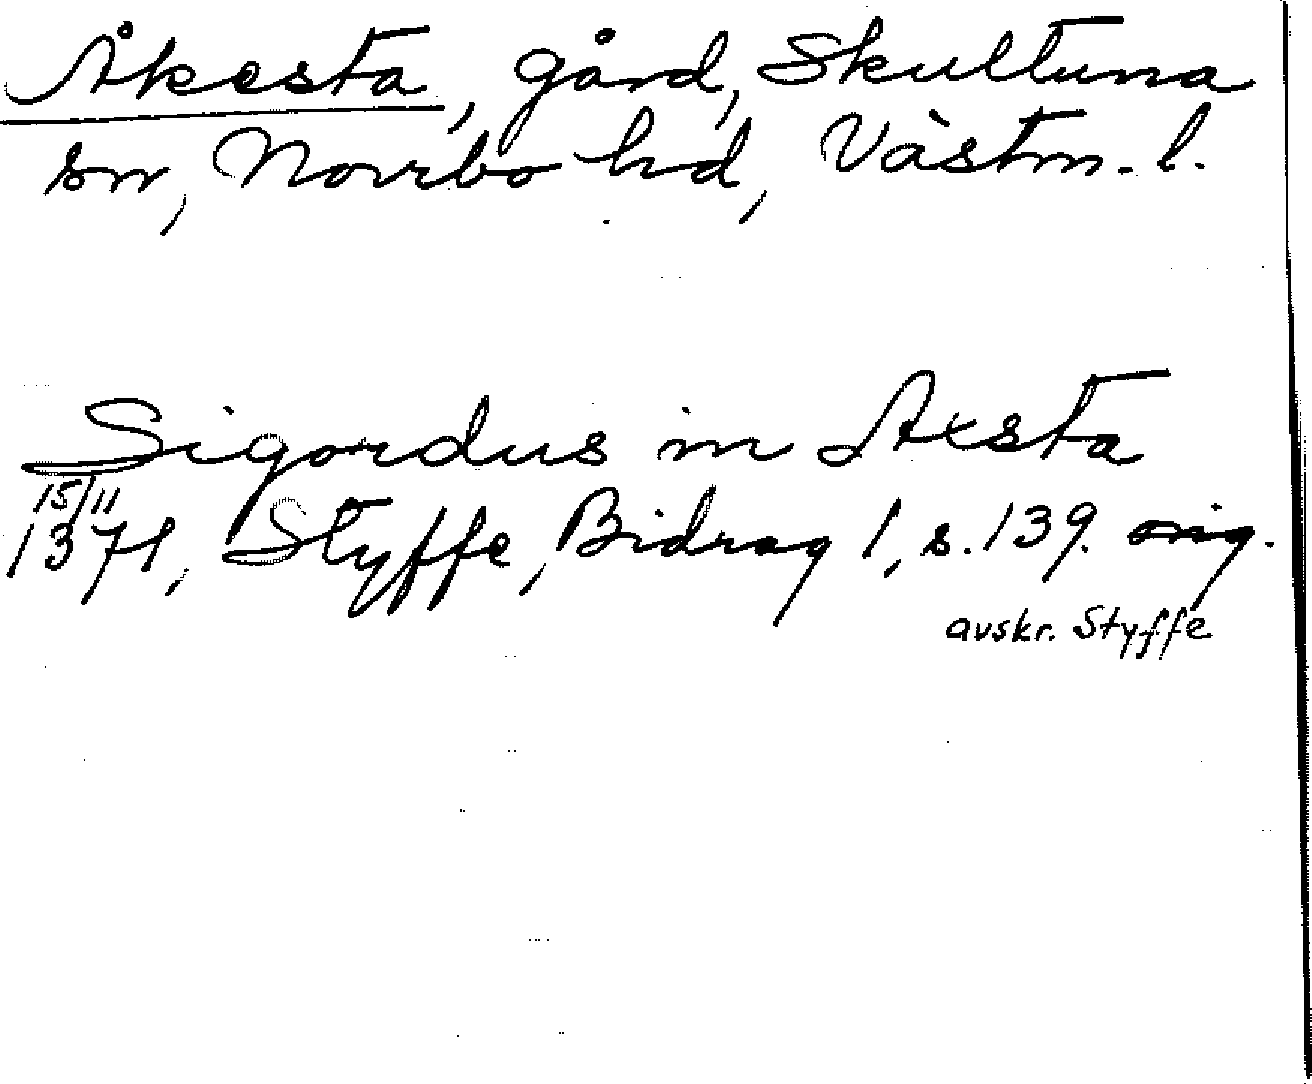 Åkesta, gård, Skultuna
sn, Norrbo hd, Västm. l.
Sigordus in Axsta
15/11
1371, Styffe, Bidrag 1, s. 139. orig.
avskr. Styffe